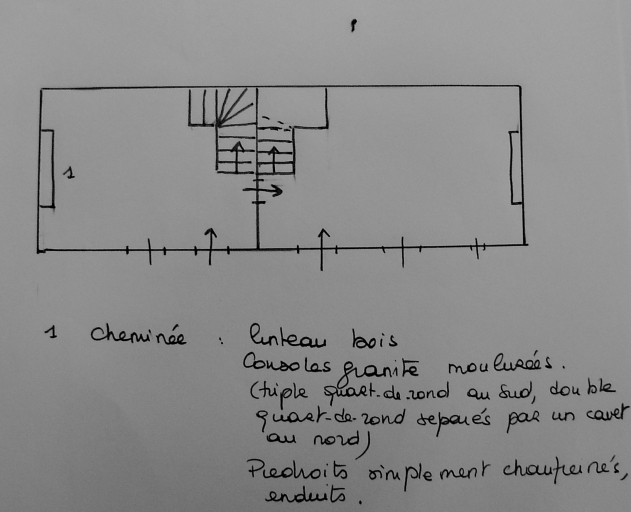 1
1 Cheminée : linteau bois
Consoles granite moulurées.
(triple quart-de-rond au sud, double
quart-de-rond séparés par un cavet
au nord)
Piedroits simplement chanfreinés,
enduits.